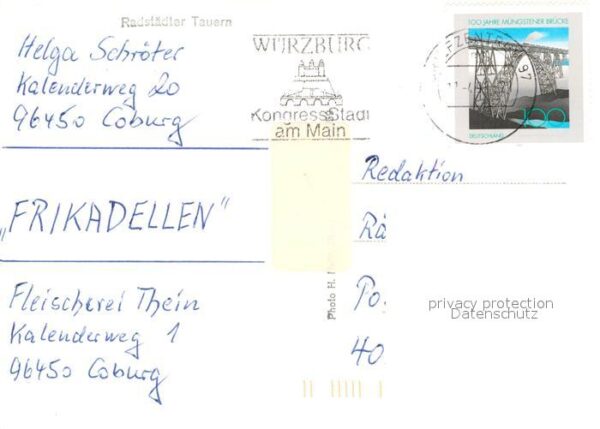 Radstädter Tauern
Helga Schröter
Kalenderweg 20
96450 Coburg
WÜRZBURG
Kongress Stadt
am Main
100 JAHRE MÜNGSTENER BRÜCKE
97
100
DEUTSCHLAND
„FRIKADELLEN"
Fleischerei Thein
Kalenderweg 1
96450 Coburg
Photo H.
Redaktion
Rä
Po
40
privacy protection
Datenschutz